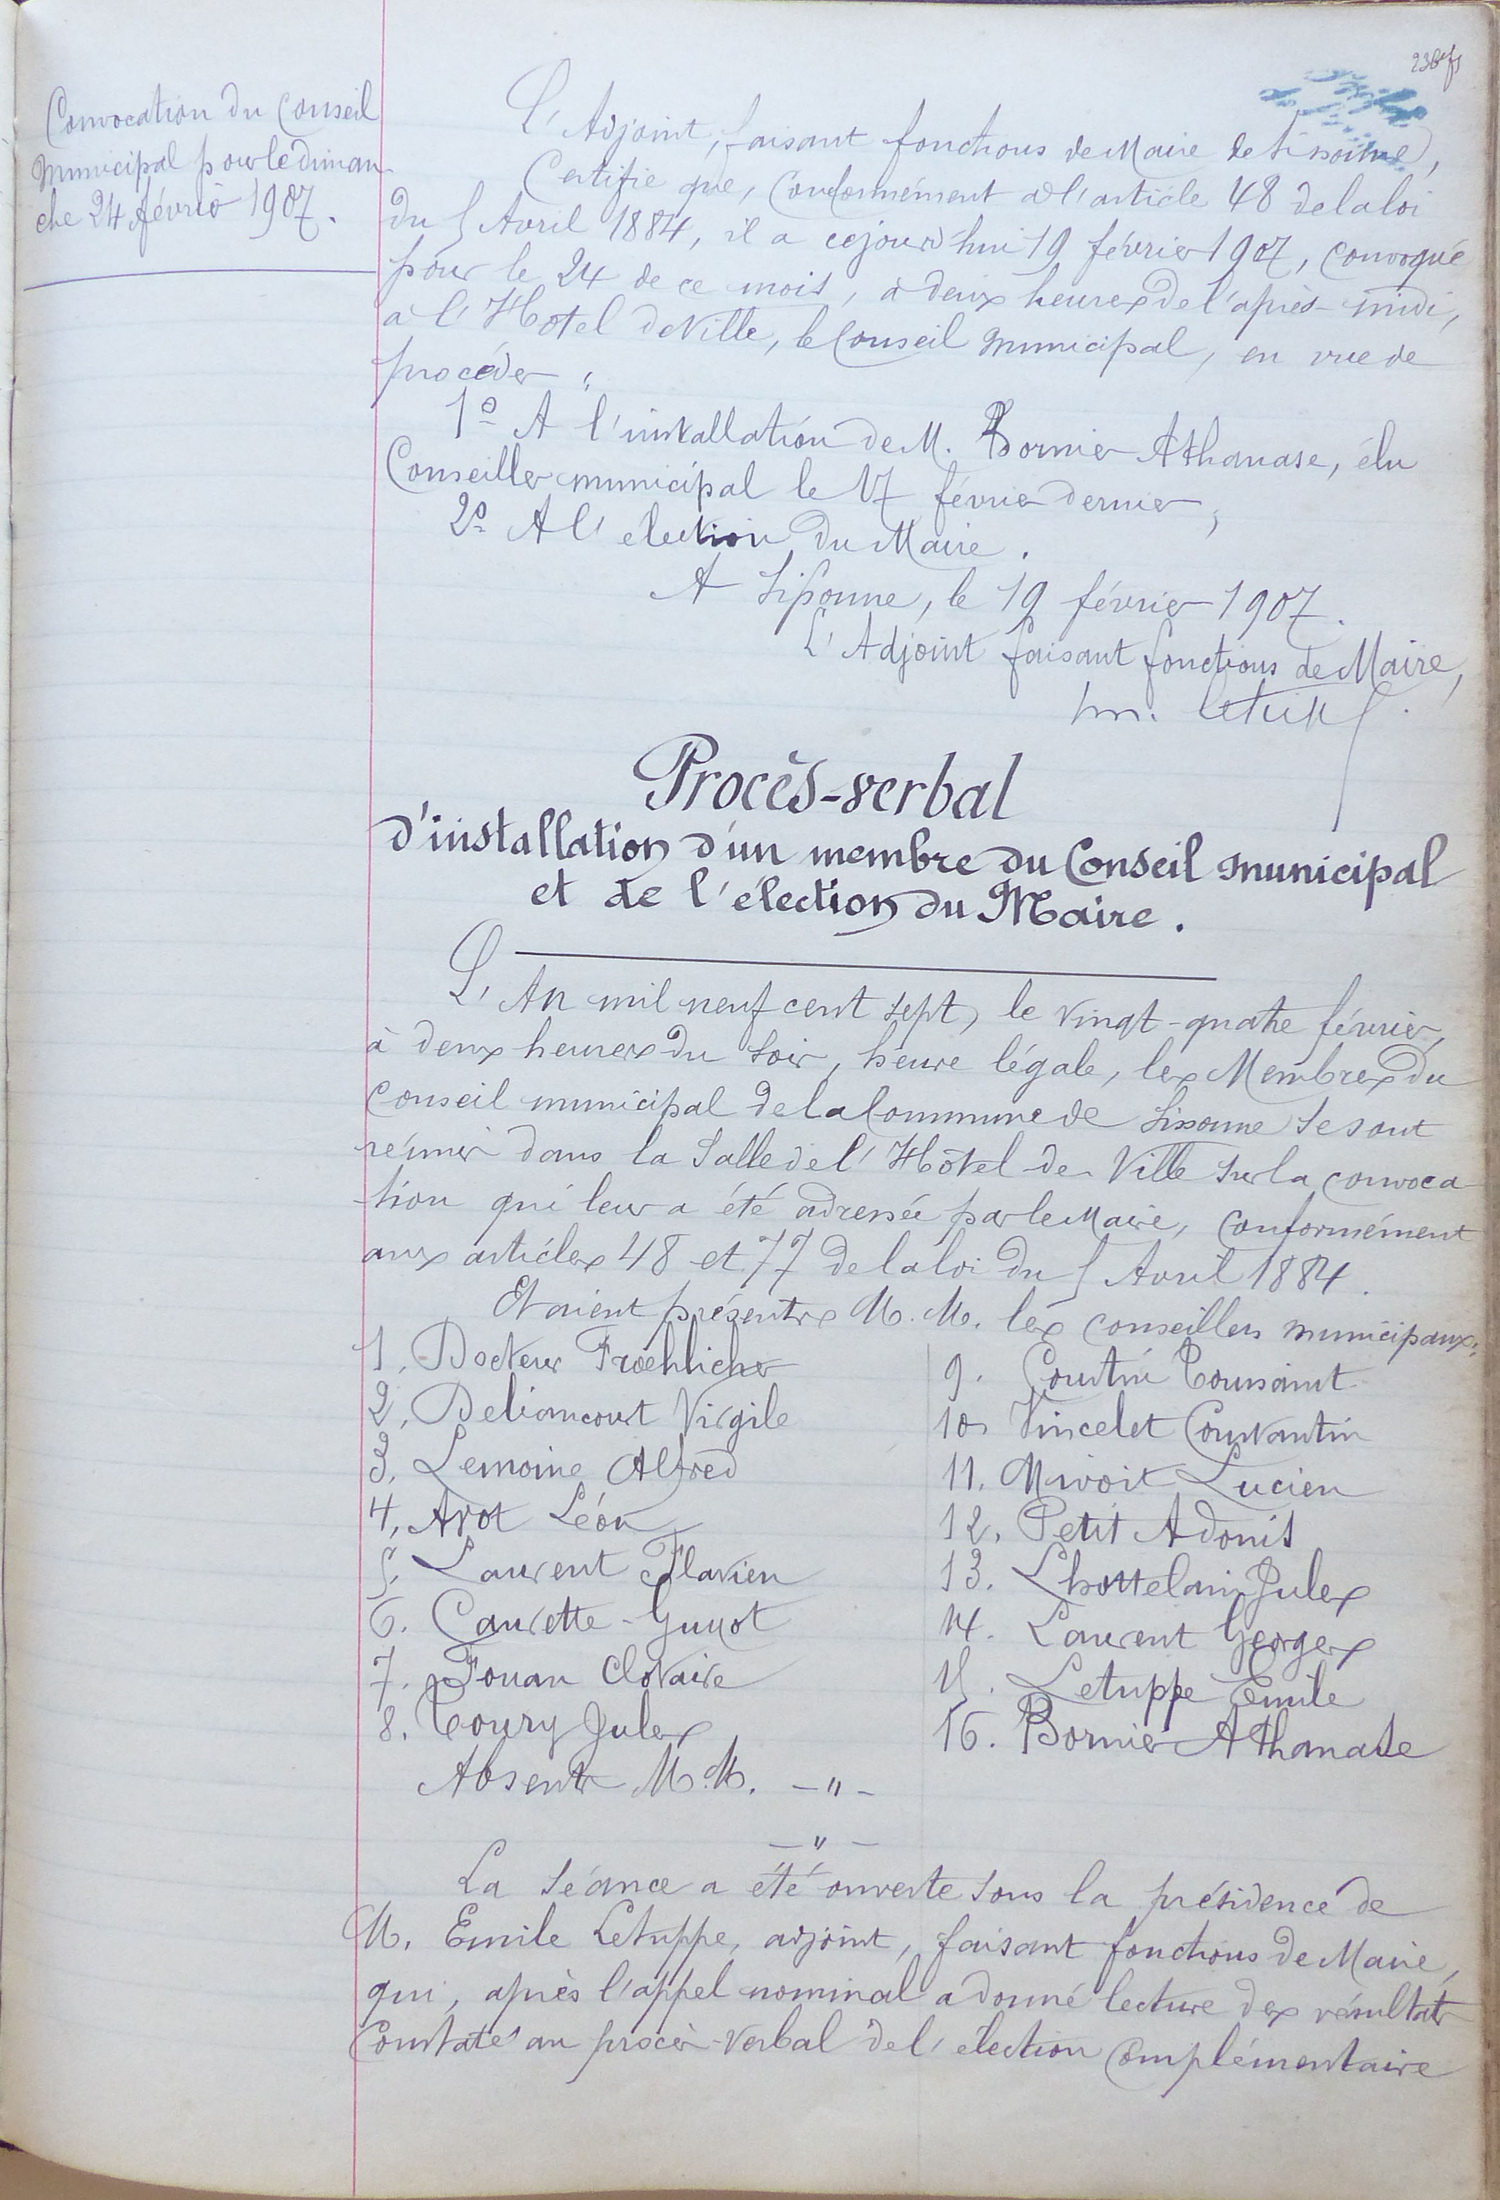 Convocation du Conseil
Municipal pour le diman-
che 24 février 1907.
L'Adjoint, faisant fonctions de Maire de Lissonne,
Certifie que, Conformément à l'article 48 de la loi
du 5 Avril 1884, il a cejourd'hui 19 février 1907, convoqué
pour le 24 de ce mois, à deux heures de l'après-midi,
à l'Hôtel de Ville, le Conseil Municipal, en vue de
procéder :
1º A l'installation de M. Bornier Athanase, élu
Conseiller municipal le 17 février dernier ;
2º A l'election du Maire.
A Sissonne, le 19 février 1907.
L'Adjoint faisant fonctions de Maire,
Procès-verbal
d'installation d'un membre du Conseil Municipal
et de l'élection du Maire.
L'An mil neuf cent sept, le vingt-quatre février,
à deux heures du soir, heure légale, les Membres du
Conseil municipal de la Commune de Sissonne se sont
réunis dans la Salle de l'Hôtel de Ville sur la convoca-
tion qui leur a été adressée par le Maire, Conformément
aux articles 48 et 77 de la loi du 5 Avril 1884.
Etaient présents M.M. les Conseillers Municipaux:
1. Docteur Froehlicher
2. Deliancourt Virgile
3. Lemoine Alfred
4. Arot Léon
5. Laurent Flavien
6. Caurette-Guyot
7. Fouan Clotaire
8. Toury Jules
9. Coustin Toussaint
10. Vincelet Constantin
11. Mivoit Lucien
12. Petit Adonis
13. Lhottelain Jules
14. Laurent Georges
15. Letuppe Emile
16. Bornier Athanase
Absents M.M. -"-
-"-
La séance a été ouverte sous la présidence de
M. Emile Letuppe, adjoint, faisant fonctions de Maire,
qui, après l'appel nominal a donné lecture des résultats
Constatés au procès-verbal de l'élection Complémentaire